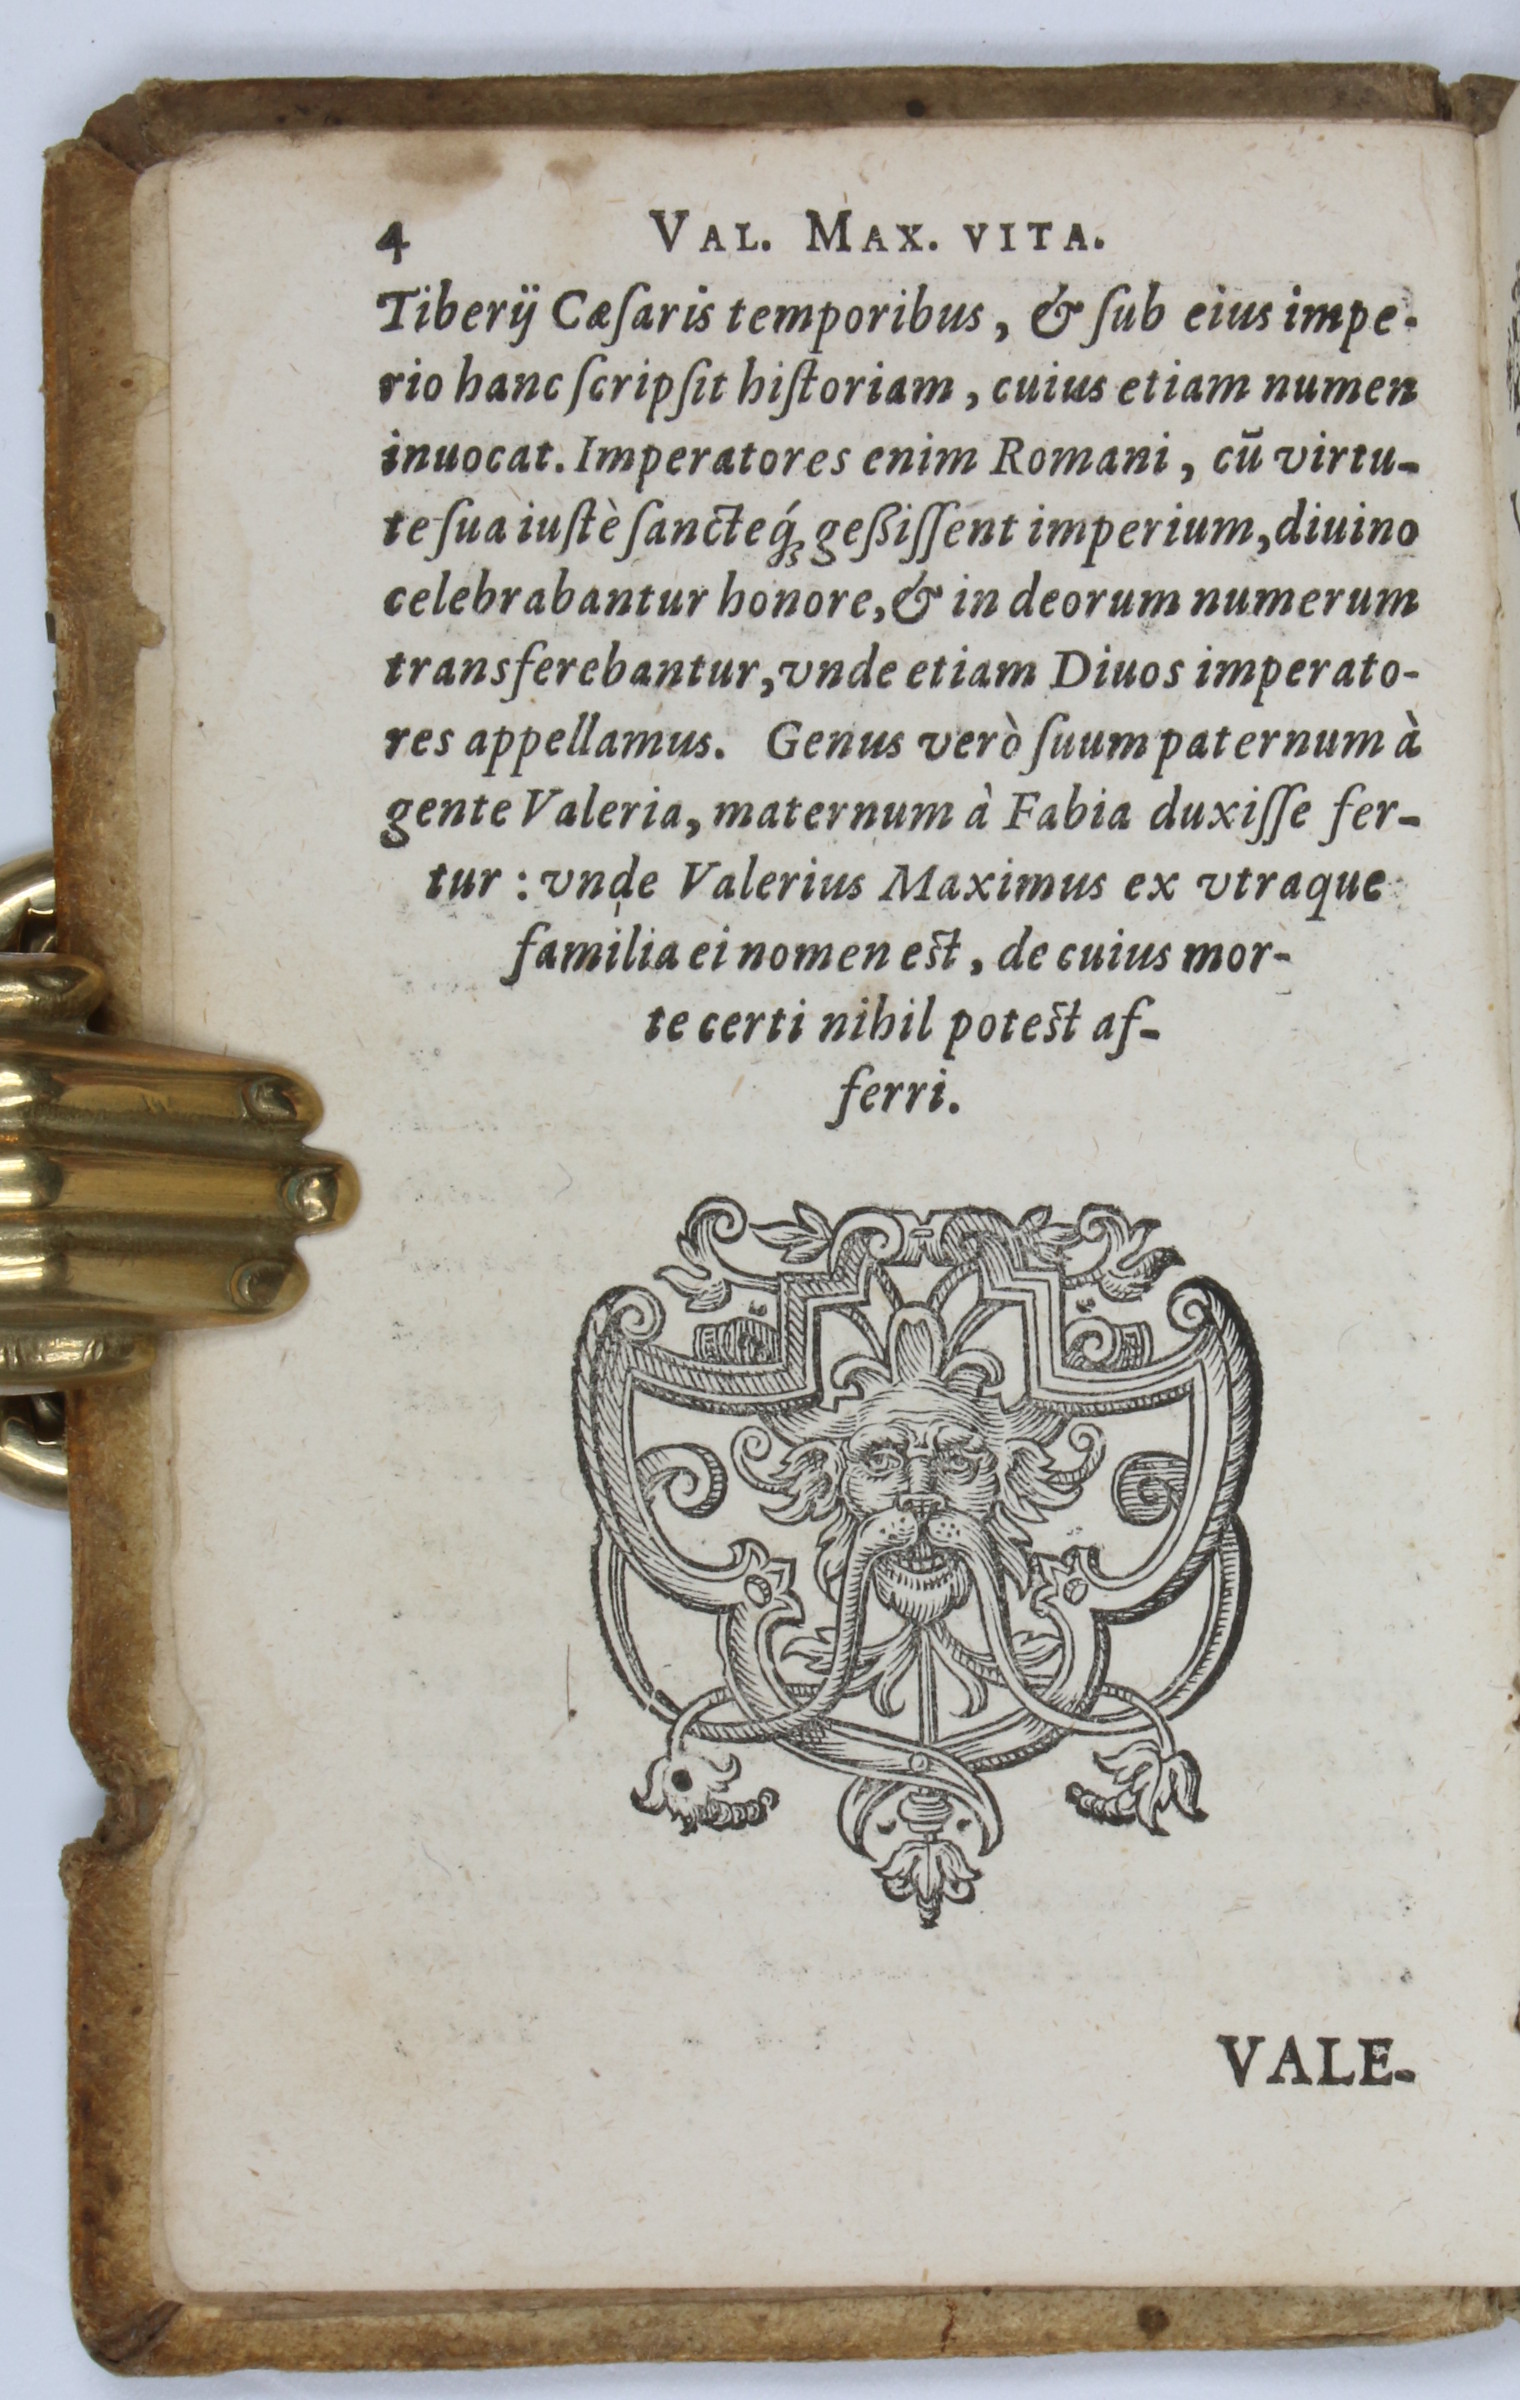 4 VAL. MAX. VITA.
Tiberij Cæſaris temporibus, & ſub eius impe-
rio hanc ſcripſit hiſtoriam, cuius etiam numen
inuocat. Imperatores enim Romani, cū virtu-
te ſua iuſtè ſancteq́ꝫ geßiſſent imperium, diuino
celebrabantur honore, & in deorum numerum
transferebantur, vnde etiam Diuos imperato-
res appellamus. Genus verò ſuum paternum à
gente Valeria, maternum à Fabia duxiſſe fer-
tur : vnde Valerius Maximus ex vtraque
familia ei nomen est, de cuius mor-
te certi nihil potest af-
ferri.
VALE-